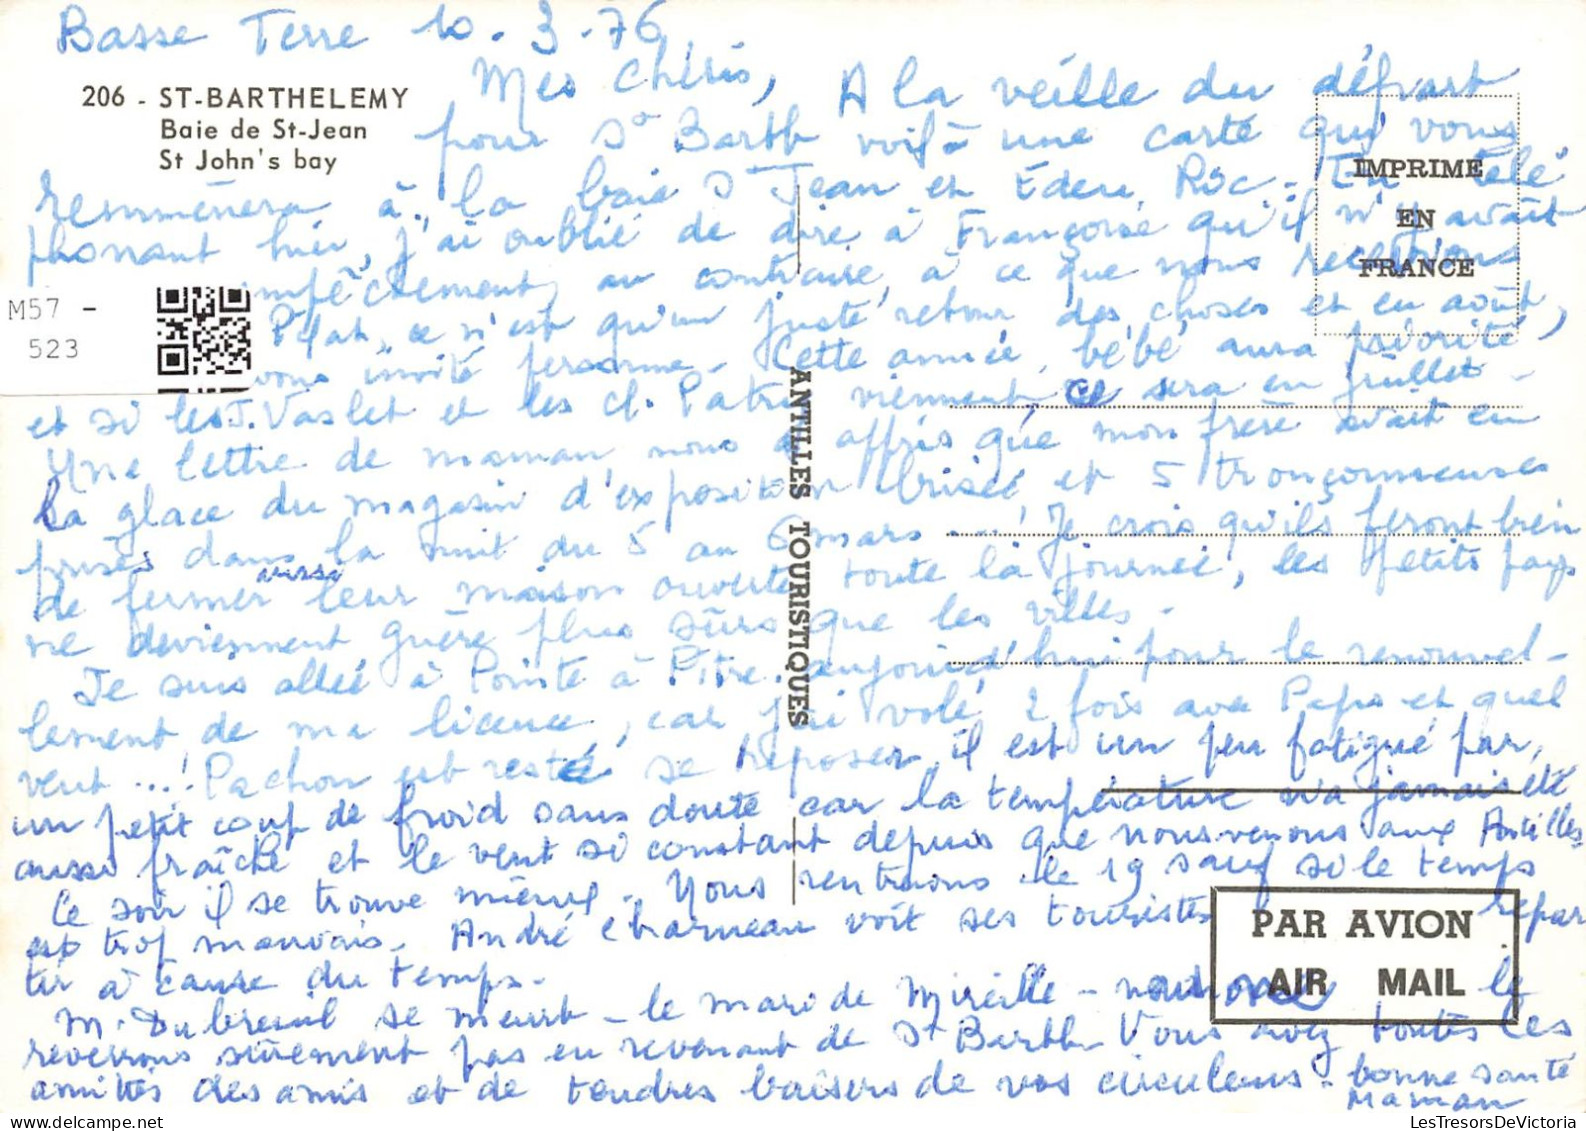 Basse Terre 10.3.76
206 - ST-BARTHELEMY
Baie de St-Jean
St John's bay
Mes chéris, A la veille du départ
pour St Barth voilà une carte qui vous
remmènera à la baie St Jean et Eden Roc - En télé
phonant hier, j'ai oublié de dire à Françoise qu'il n'y avait
empêchement, au contraire, à ce que nous recevions
Pilat, ce n'est qu'un juste retour des choses et en août,
vous invité personne - Cette année, bébé aura priorité,
et si les J. Vaslet et les cl. Patru viennent, ce sera en juillet -
Une lettre de maman nous a appris que mon frère avait eu
la glace du magasin d'exposition brisée et 5 tronçonneuses
prises dans la nuit du 5 au 6 mars ....! Je crois qu'ils feront bien
de fermer aussi leur maison ouverte toute la journée, les petits pays
ne deviennent guère plus sûrs que les villes -
Je suis allée à Pointe à Pitre aujourd'hui pour le renouvel-
lement de ma licence, car j'ai volé 2 fois avec Papa et quel
vent ...! Pachon est resté se reposer, il est un peu fatigué par,
un petit coup de froid sans doute car la température n'a jamais été
aussi fraîche et le vent si constant depuis que nous venons aux Antilles
Ce soir il se trouve mieux - Nous rentrons le 19 sauf si le temps
est trop mauvais - André Charneau voit ses touristes repar
tir à cause du temps -
M. Dubreuil se meurt - le mari de Mireille - nous ne le
reverrons sûrement pas en revenant de St Barth - Vous avez toutes les
amitiés des amis et de tendres baisers de vos - bonne santé
Maman
IMPRIME
EN
FRANCE
M57 -
523
ANTILLES TOURISTIQUES
PAR AVION
AIR MAIL
LesTresorsDeVictoria